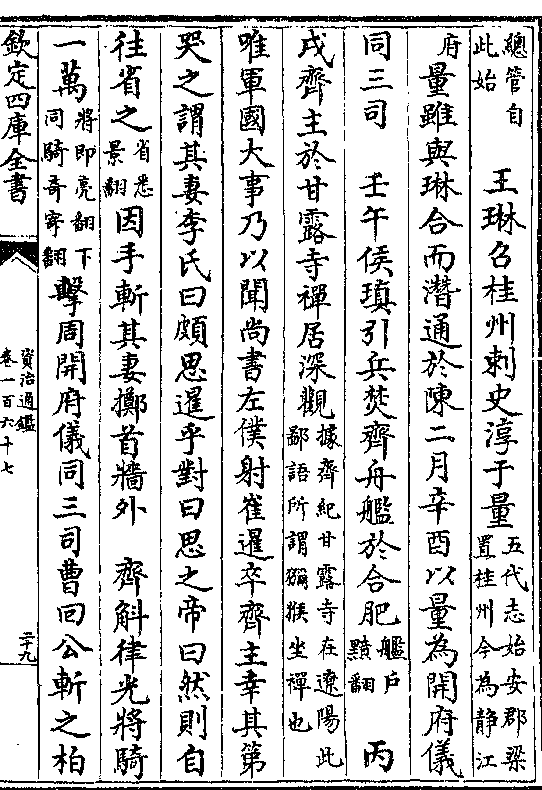 總管自此始 王琳召桂州刺史淳于量五代志始安郡梁置桂州今為静江
府量雖與琳合而潛通於陳二月辛酉以量為開府儀
同三司 壬午侯瑱引兵焚齊舟艦於合肥艦户黯翻 丙
戌齊主於甘露寺禪居深觀據齊紀甘露寺在遼陽此鄙語所謂獼猴坐禪也
唯軍國大事乃以聞尚書左僕射崔暹卒齊主幸其第
哭之謂其妻李氏曰頗思暹乎對曰思之帝曰然則自
往省之省悉景翻因手斬其妻擲首牆外 齊斛律光將騎
一萬將即亮翻下同騎奇寄翻擊周開府儀同三司曹回公斬之柏
欽定四庫全書
資治通鑑
卷一百六十七
二十九